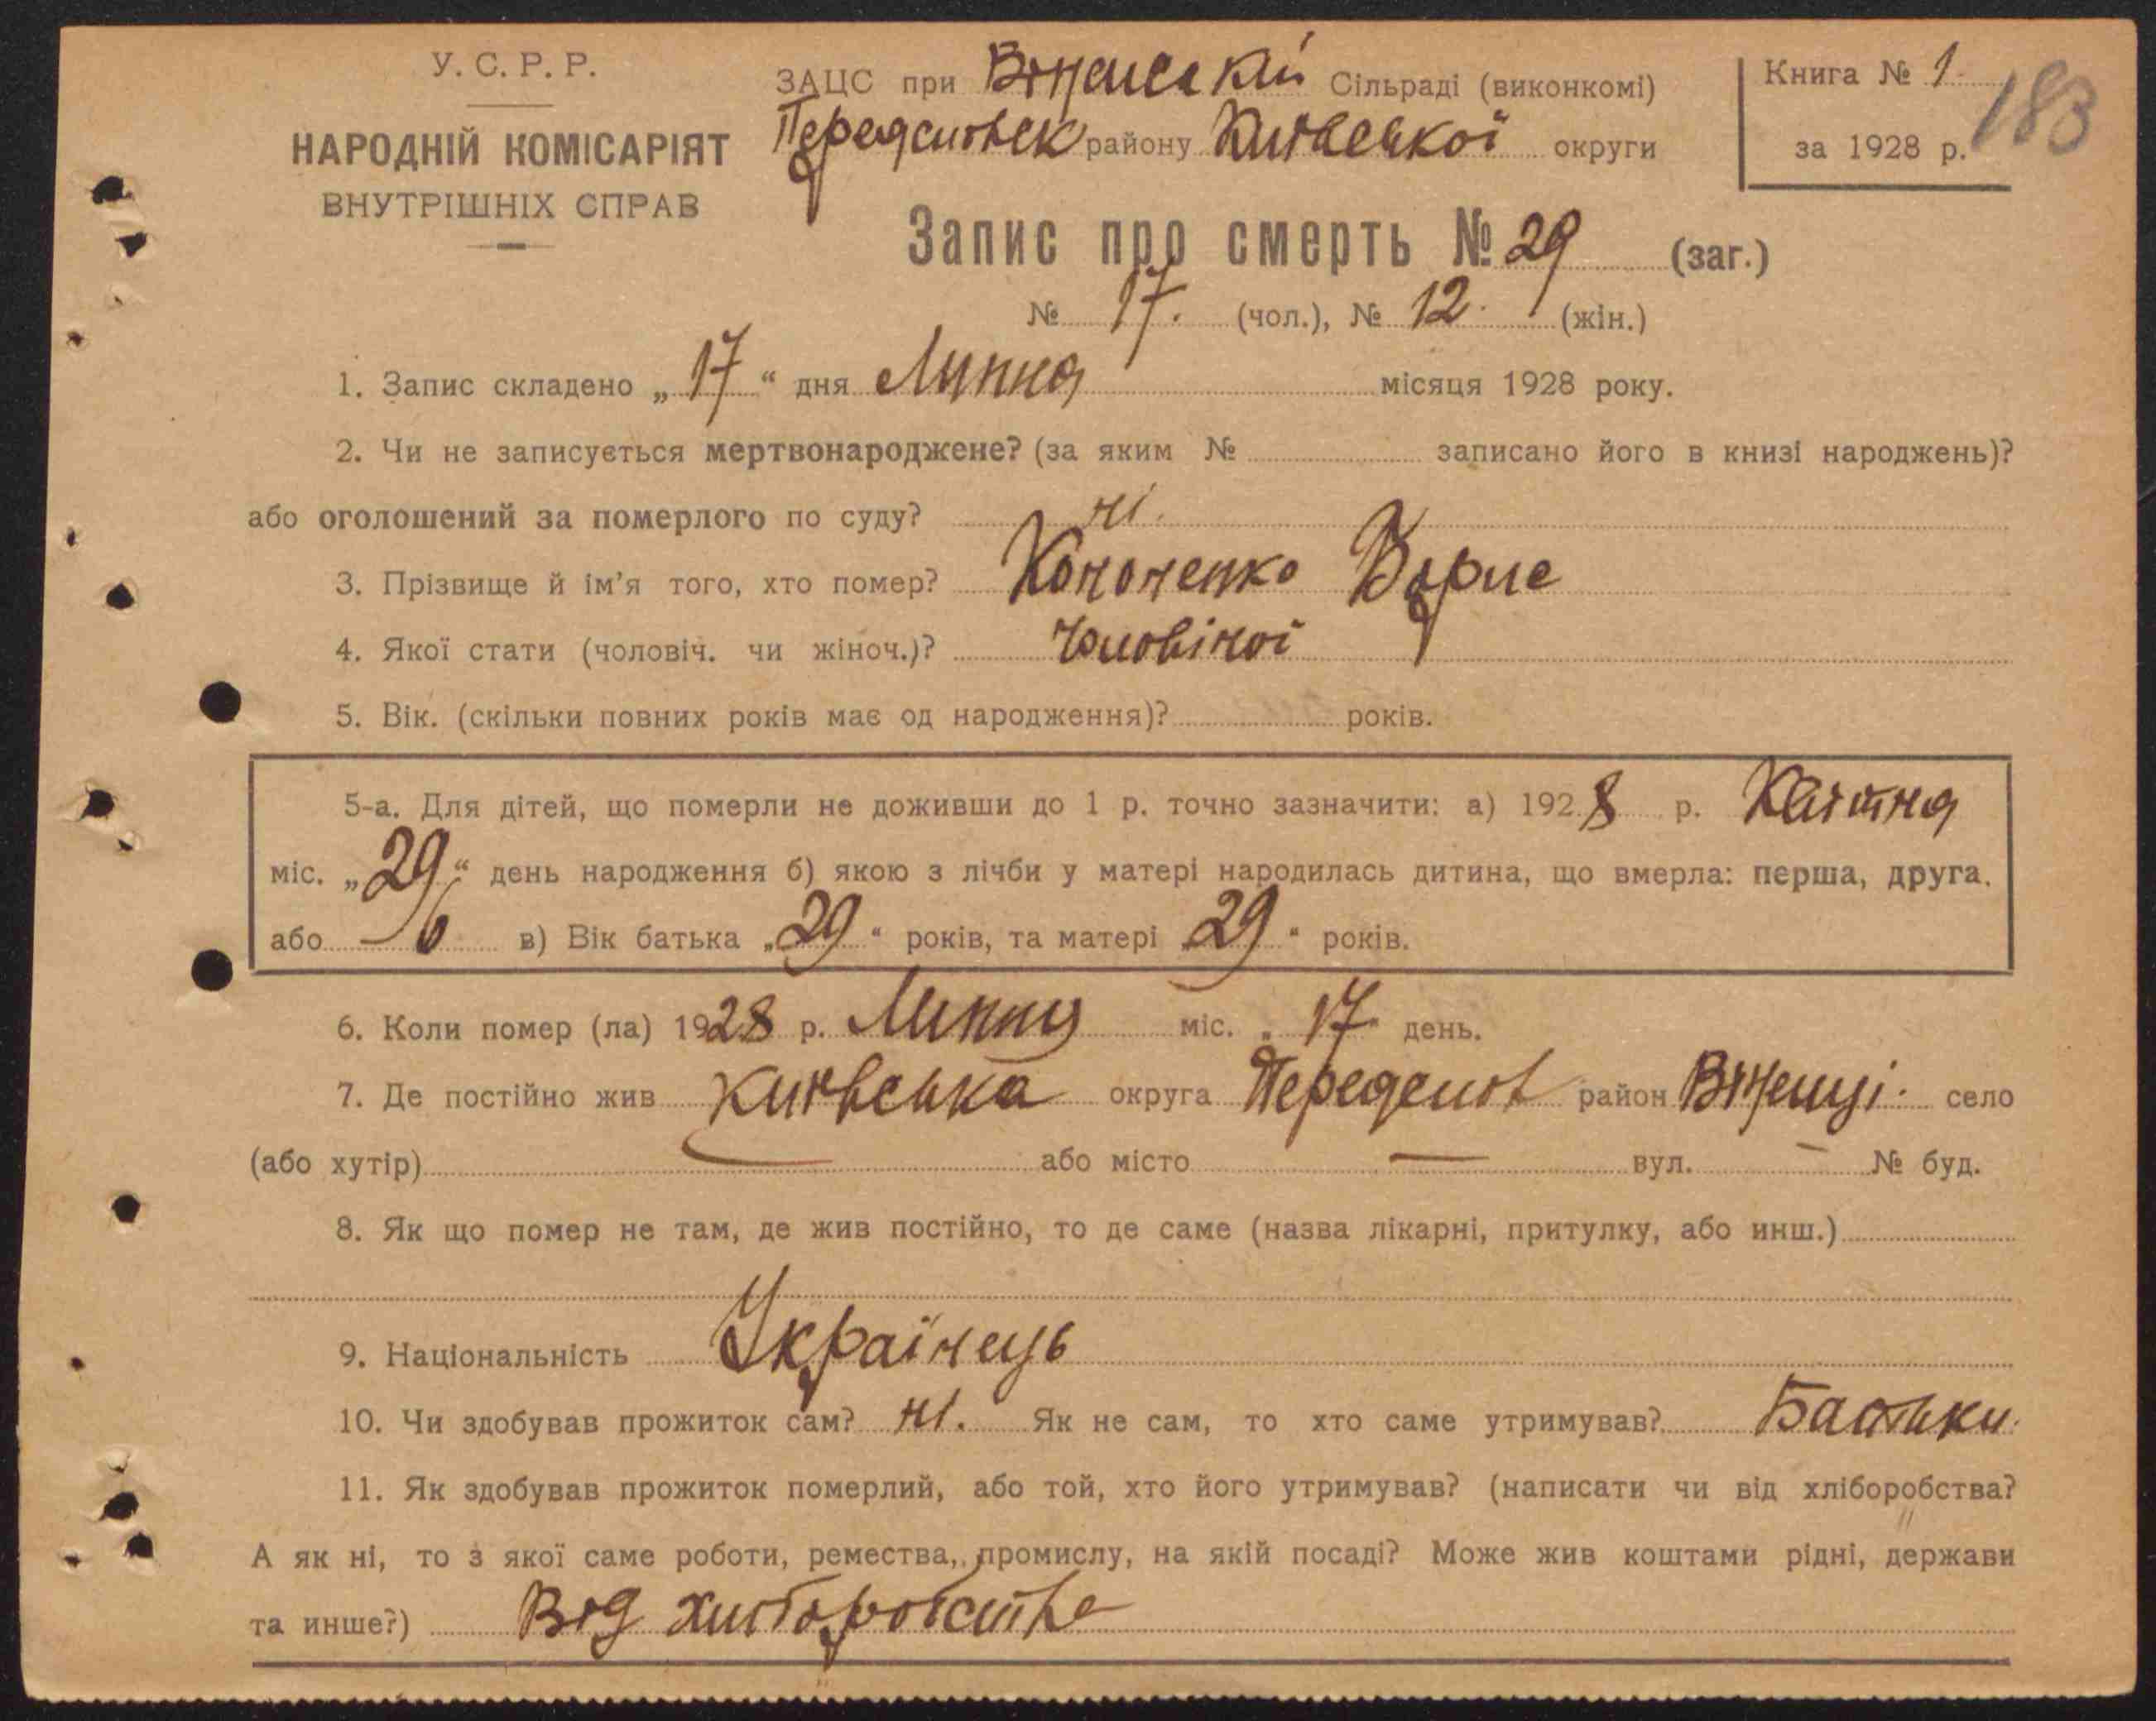 У. С. Р. Р.
НАРОДНІЙ КОМІСАРІЯТ
ВНУТРІШНІХ СПРАВ
ЗАЦС при Сільраді (виконкомі)
району Київської округи
Книга № 1.
за 1928 р.
183
Запис про смерть № 29 (заг.)
№ 17. (чол.), № 12. (жін.)
1. Запис складено „17“ дня Липня місяця 1928 року.
2. Чи не записується мертвонароджене? (за яким № записано його в книзі народжень)?
або оголошений за померлого по суду? ні.
3. Прізвище й ім’я того, хто помер? Кононенко Борис
4. Якої стати (чоловіч. чи жіноч.)? Чоловічої
5. Вік. (скільки повних років має од народження)? років.
5-а. Для дітей, що померли не доживши до 1 р. точно зазначити: а) 1928 р. Квітня
міс. „29“ день народження б) якою з лічби у матері народилась дитина, що вмерла: перша, друга,
або – 6 в) Вік батька „29“ років, та матері „29“ років.
6. Коли помер (ла) 1928 р. Липня міс. „17“ день.
7. Де постійно жив Київська округа район село
(або хутір) — або місто — вул. – № буд.
8. Як що помер не там, де жив постійно, то де саме (назва лікарні, притулку, або инш.)
9. Національність Українець
10. Чи здобував прожиток сам? ні. Як не сам, то хто саме утримував? Батьки.
11. Як здобував прожиток померлий, або той, хто його утримував? (написати чи від хліборобства?
А як ні, то з якої саме роботи, ремества, промислу, на якій посаді? Може жив коштами рідні, держави
та инше?) Від хліборобства